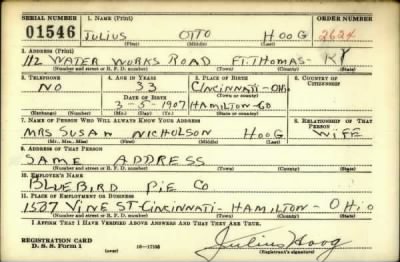 SERIAL NUMBER 1. NAME (Print) ORDER NUMBER
01546 JULIUS OTTO HOOG 2624
(First) (Middle) (Last)
2. ADDRESS (Print)
112 WATER WORKS ROAD FT. THOMAS- KY
(Number and street or R. F. D. number) (Town) (County) (State)
3. TELEPHONE 4. AGE IN YEARS 5. PLACE OF BIRTH 6. COUNTRY OF CITIZENSHIP
NO 33 CINCINNATI-OH.
DATE OF BIRTH (Town or county)
3-5-1907 HAMILTON-CO
(Exchange) (Number) (Mo.) (Day) (Yr.) (State or country)
7. NAME OF PERSON WHO WILL ALWAYS KNOW YOUR ADDRESS 8. RELATIONSHIP OF THAT PERSON
MRS SUSAN NICHOLSON HOOG WIFE
(Mr., Mrs., Miss) (First) (Middle) (Last)
9. ADDRESS OF THAT PERSON
SAME ADDRESS
(Number and street or R. F. D. number) (Town) (County) (State)
10. EMPLOYER'S NAME
BLUEBIRD PIE CO
11. PLACE OF EMPLOYMENT OR BUSINESS
1507 VINE ST-CINCINNATI- HAMILTON- OHIO
(Number and street or R. F. D. number) (Town) (County) (State)
I AFFIRM THAT I HAVE VERIFIED ABOVE ANSWERS AND THAT THEY ARE TRUE.
REGISTRATION CARD
D. S. S. Form 1 16-17105 Julius Hoog
(Registrant's signature)